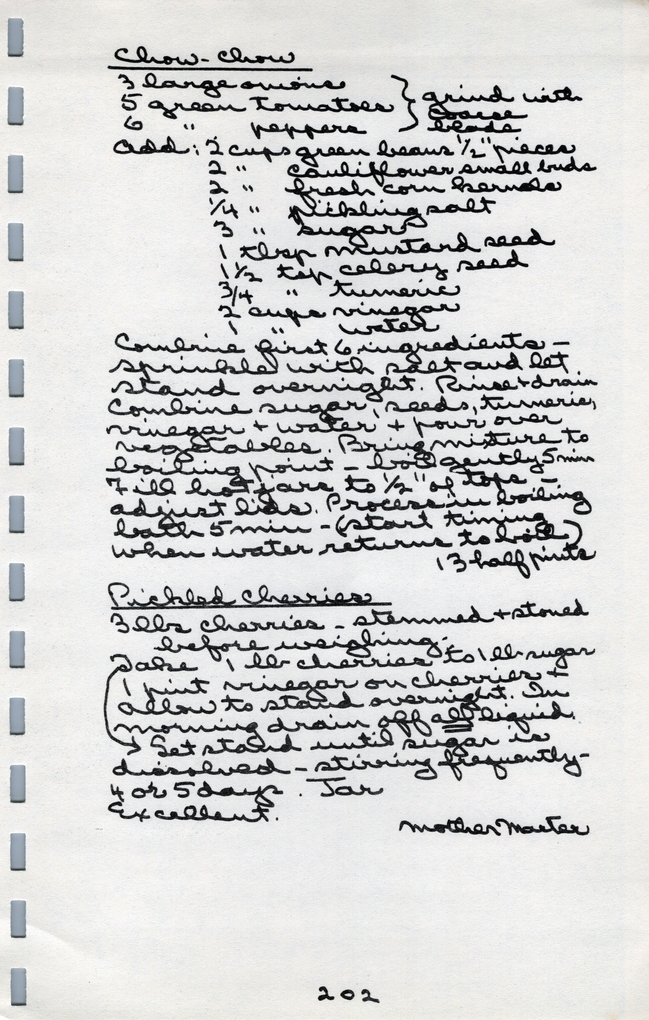 Chow-Chow
3 large onions
5 green tomatoes } grind with
coarse
6 " peppers blade
add: 2 cups green beans 1/2" pieces
2 " cauliflower small buds
2 " fresh corn kernels
1/4 " pickling salt
3 " sugar
1 tbsp mustard seed
1 1/2 tsp celery seed
3/4 " tumeric
2 cups vinegar
1 " water
Combine first 6 ingredients -
sprinkle with salt and let
stand overnight. Rinse + drain
Combine sugar, seeds, tumeric,
vinegar + water + pour over
vegetables. Bring mixture to
boiling point - boil gently 5 min
Fill hot jars to 1/2" of tops -
adjust lids. Process in boiling
bath 5 min - (start timing
when water returns to boil)
13 half pints
Pickled Cherries
3 lbs cherries - stemmed + stoned
before weighing.
Take 1 lb cherries to 1 lb sugar
1 pint vinegar on cherries +
allow to stand overnight. In
morning drain off all liquid.
Let stand until sugar is
dissolved - stirring frequently -
4 or 5 days. Jar
Excellent.
Mother
202